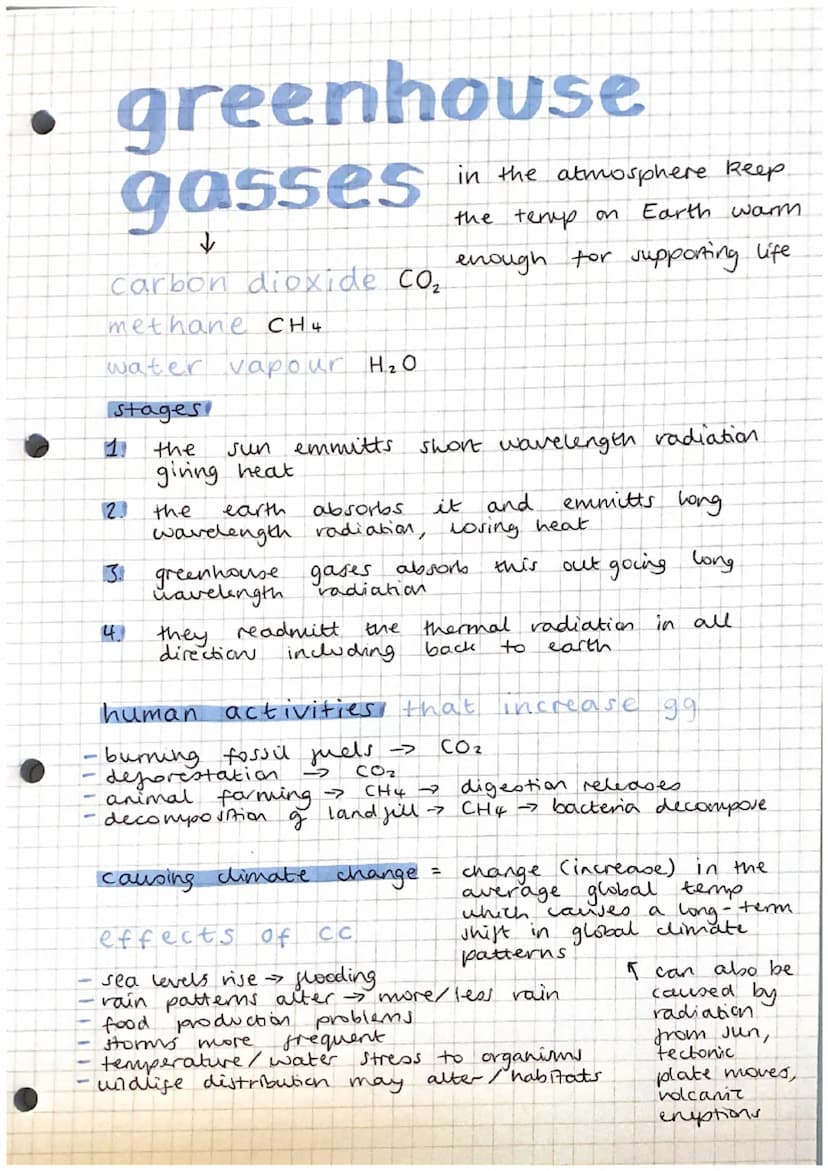 greenhouse
gasses
in the atmosphere keep
the temp on Earth warm
enough for supporting life
↓
carbon dioxide CO₂
methane CH₄
water vapour H₂O
stages
1. the sun emmitts short wavelength radiation
giving heat
2. the earth absorbs it and emmitts long
wavelength radiation, losing heat
3. greenhouse gases absorb this out going long
wavelength radiation
4. they readmitt the thermal radiation in all
direction including back to earth
human activities that increase gg
- burning fossil fuels → CO₂
- deforestation → CO₂
- animal farming → CH₄ → digestion releases
- decomposition of landfill → CH₄ → bacteria decompose
causing climate change = change (increase) in the
average global temp
which causes a long-term
shift in global climate
patterns
effects of cc
- sea levels rise → flooding
- rain patterns alter → more/less rain
- food production problems
- storms more frequent
- temperature/water stress to organisms
- wildlife distribution may alter/habitats
↖ can also be
caused by
radiation
from sun,
tectonic
plate moves,
volcanic
eruptions